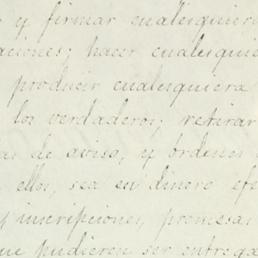 y firmar cualesquiera
aciones; hacer cualesquie
producir cualesquiera
los verdaderos; retirar
as de aviso, y ordenes
ellos, sea en dinero efe
y inscripciones, promesas
que pudieren ser entrega